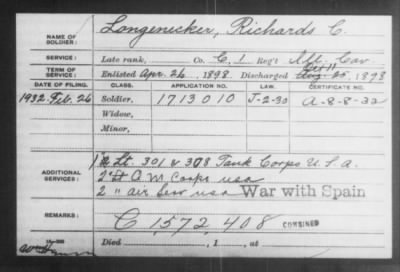 NAME OF SOLDIER: Longenecker, Richards C.
SERVICE: Late rank, Co. C, 1 Reg't Ill Cav
TERM OF SERVICE: Enlisted Apr. 26, 1898. Discharged Oct 11, 1898
Aug 25
DATE OF FILING. CLASS. APPLICATION NO. LAW. CERTIFICATE NO.
1932 Feb. 26 Soldier, 1713010 J-2-30 A-8-8-32
Widow,
Minor,
ADDITIONAL SERVICES:
1st Lt. 301 & 308 Tank Corps U.S.A.
2 Lt Q.M. Corps usa
2 " air Serv usa War with Spain
REMARKS: C 1,572,408 COMBINED
Died , 1 , at